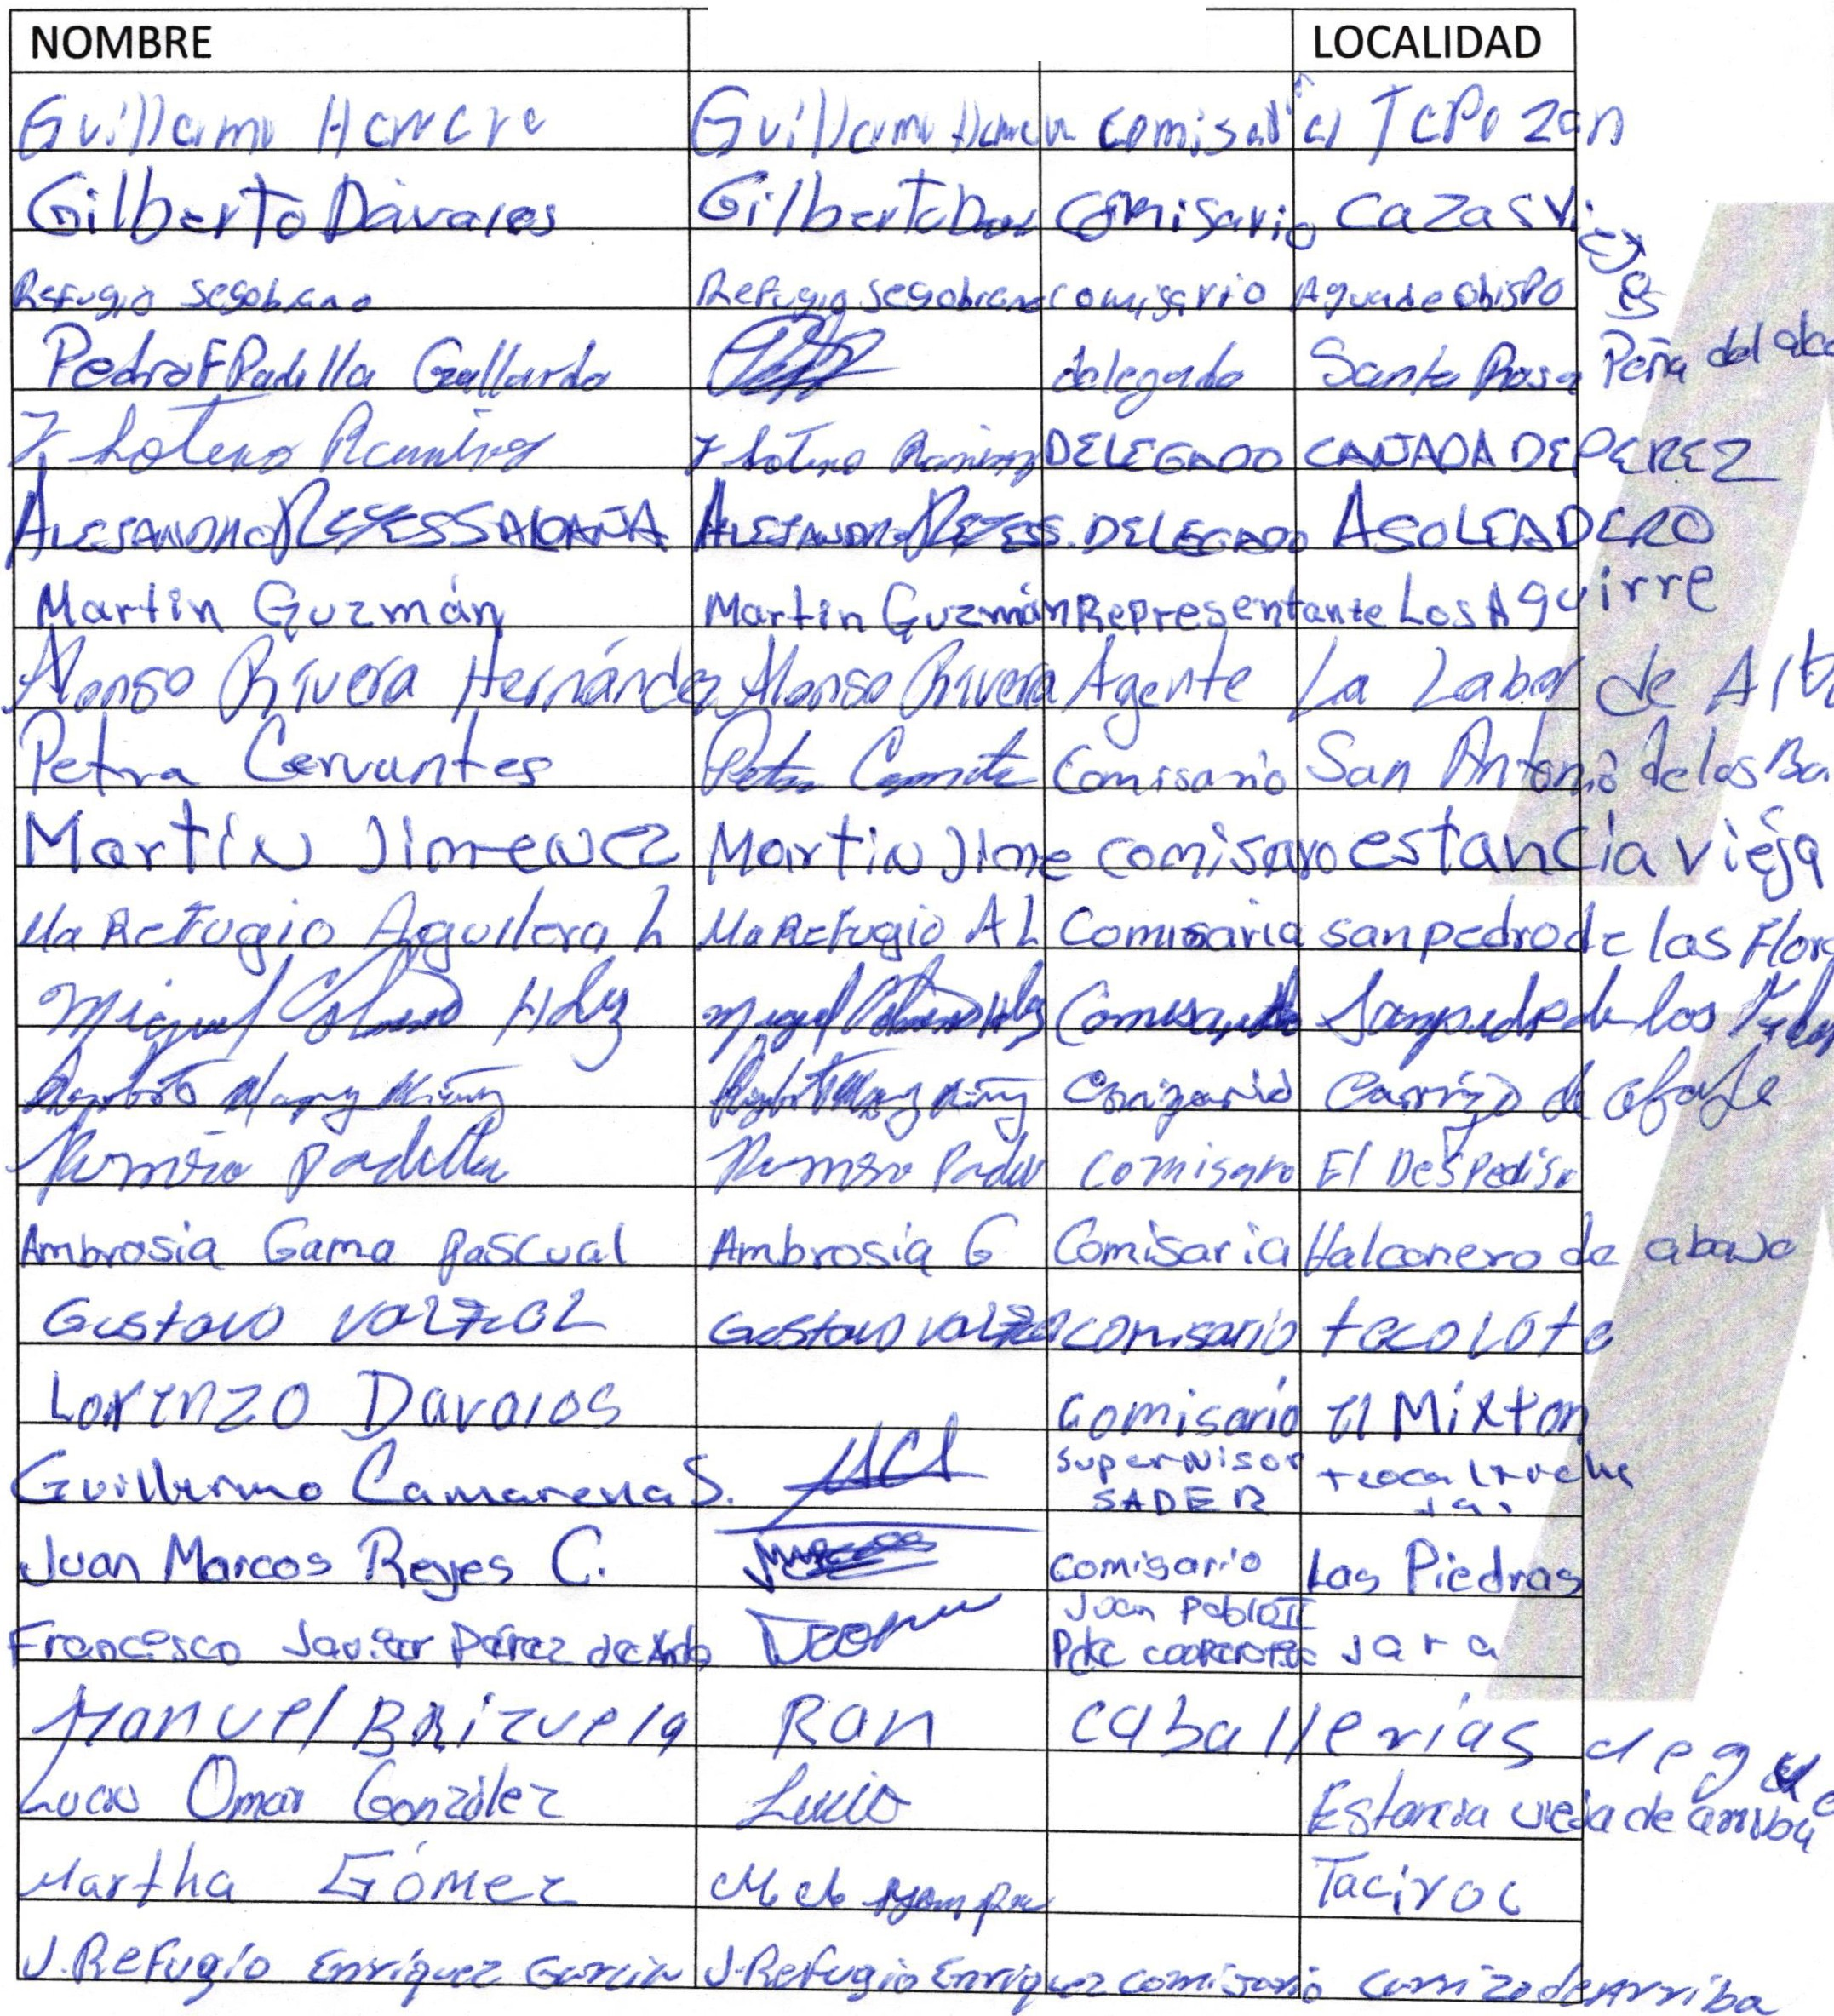 NOMBRE LOCALIDAD
Guillermo Herrera Guillermo Herrera comisar el Tepozan
Gilberto Dàvalos Gilberto Dav comisario Cazas Viejas
Refugio Segobiano Refugio Segobiano comisario Agua de obispo
Pedro F Padilla Gallardo delegado Santa Rosa Peña del
Ramirez Ramirez DELEGADO CAÑADA DE PEREZ
ALEJANDRO REYES SALDAÑA ALEJANDRO REYES S. DELEGADO ASOLEADERO
Martin Guzmán Martin Guzmán Representante Los Aguirre
Alonso Rivera Hernández Alonso Rivera Agente La Labor de
Petra Cervantes Petra Comissario San Antonio de los Ba
Martin Jimenez Martin Jime comisaro estancia viéja
Ma Refugio Aguilera L Ma Refugio A L Comisaria san pedro de las Flore
Miguel Hdz Miguel Hdz San pedro de los
Comizario Carrizo de abajo
Ramiro Padilla Ramiro Padill comisaro El Despediso
Ambrosia Gama Pascual Ambrosia G Comisaria Halconero de abajo
Gustavo Gustavo comisario tecolote
Lorenzo Davalos Comisario El Mixton
Guillermo Camarena S. Supervisor
SADER Teocaltiche
Jal
Juan Marcos Reyes C. Comisario Las Piedras
Francisco Javier Pérez de Juan Pablo II
Pdte Jara
Manuel Brizuela Ran caballerias
Lucio Omar González Lucio Estancia vieja de arriba
Martha Gómez
J. Refugio Enríquez Garcia J. Refugio Enriquez comisario Carrizo de Arriba